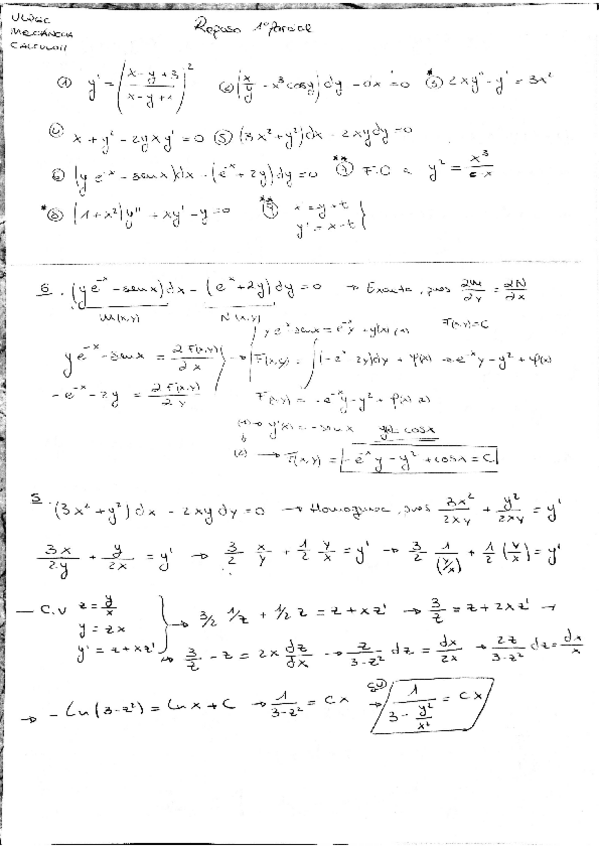 ULPGC
MECÁNICA
CÁLCULO II
Repaso 1º parcial
① y' = ((x-y+3)/(x-y+1))² ② (x/y - x³cosy)dy - dx = 0 *③ 2xy'' - y' = 3x²
④ x + y² - 2yxy' = 0 ⑤ (3x²+y²)dx - 2xydy = 0
⑥ (ye⁻ˣ - senx)dx - (e⁻ˣ + 2y)dy = 0 **⑦ F.C a y² =
*⑧ (1+x²)y'' + xy' - y = 0 **⑨ x' = y + t
y' = x - t }
6. (ye⁻ˣ - senx)dx - (e⁻ˣ + 2y)dy = 0 → Exacta, pues ∂M/∂y = ∂N/∂x
M(x,y) N(x,y)
F(x,y) = C
ye⁻ˣ - senx = ∂F(x,y)/∂x → F(x,y) = ∫(-e⁻ˣ - 2y)dy + φ(x) = -e⁻ˣy - y² + φ(x)
-e⁻ˣ - 2y = ∂F(x,y)/∂y F(x,y) = -e⁻ˣy - y² + φ(x)
φ'(x) = -senx cosx
→ F(x,y) = -e⁻ˣy - y² + cosx = C
5. (3x² + y²)dx - 2xydy = 0 → Homogénea, pues 3x²/2xy + y²/2xy = y'
3x/2y + y/2x = y' → 3/2 x/y + 1/2 y/x = y' → 3/2 1/(y/x) + 1/2 (y/x) = y'
— C.V z = y/x
y = zx → 3/2 1/z + 1/2 z = z + xz' → 3/z = z + 2xz' →
y' = z + xz' → 3/z - z = 2x dz/dx → z/(3-z²) dz = dx/2x → 2z/(3-z²) dz = dx/x
→ -Ln(3-z²) = Lnx + C → 1/(3-z²) = Cx → 1/(3 - y²/x²) = Cx